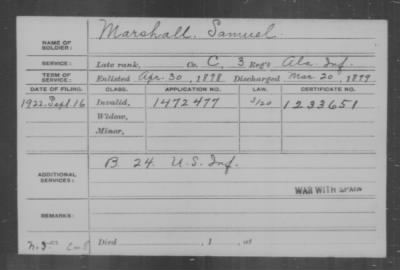 NAME OF SOLDIER: Marshall, Samuel.
SERVICE: Late rank, Co. C, 3 Reg't Ala. Inf.
TERM OF SERVICE: Enlisted Apr. 30, 1898. Discharged Mar. 20, 1899
DATE OF FILING. CLASS. APPLICATION NO. LAW. CERTIFICATE NO.
1922. Sept 16 Invalid, 1472477 1233651
Widow,
Minor,
ADDITIONAL SERVICES: B. 24. U.S. Inf.
WAR WITH SPAIN
REMARKS:
Died , 1 , at